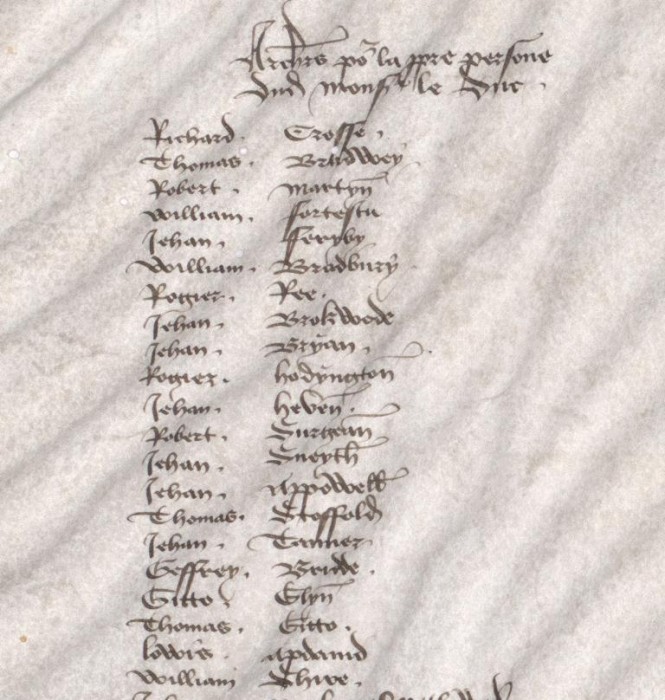 Archrs po la ppre persone
dud monsr le Duc
Richard Crosse
Thomas Bradwey
Robert Martyn
William fortescu
Jehan feryby
William Bradbury
Rogier Ree
Jehan Brokwode
Jehan Bryan
Rogier hodyngton
Jehan heven
Robert Surgean
Jehan Sneyth
Jehan appowell
Thomas Stoffold
Jehan Tanner
Geffrey Bridde
Gitto Glyn
Thomas Gitto
lowis apdavid
William